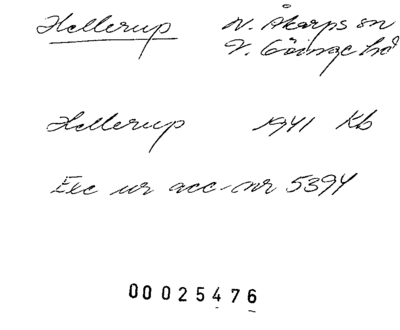 Hellerup N. Åkarps sn
V. Göinge hd
Hellerup 1941 Kb
Exc ur acc-nr 5394
00025476